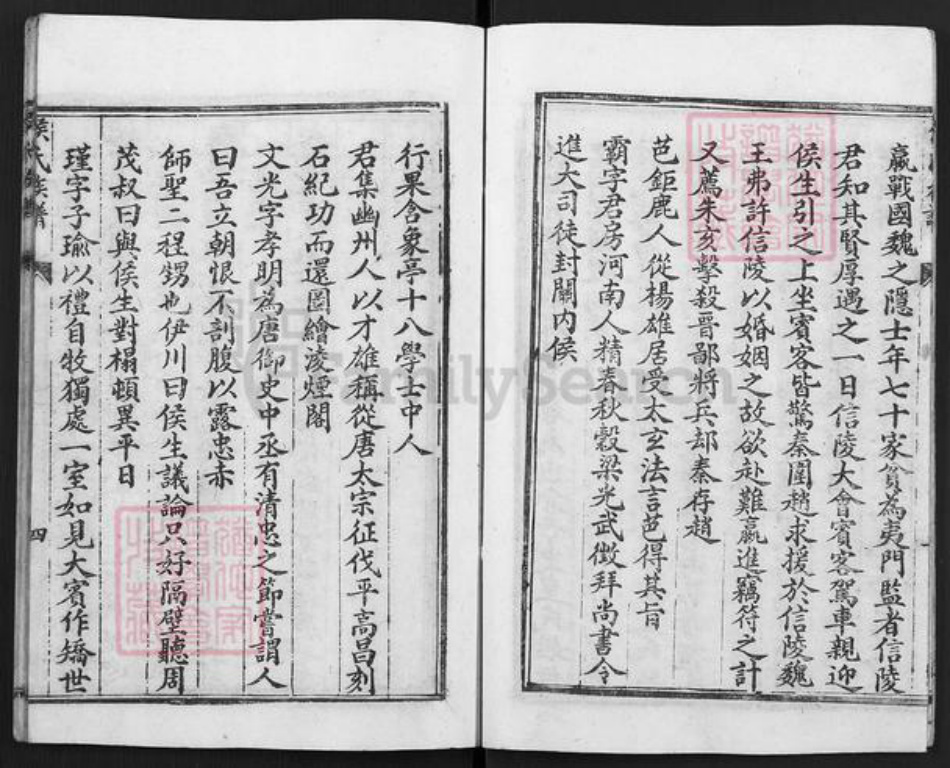 嬴戰國魏之隱士年七十家貧為夷門監者信陵
君知其賢厚遇之一日信陵大會賓客駕車親迎
侯生引之上坐賓客皆驚秦圍趙求援於信陵魏
王弗許信陵以婚姻之故欲赴難嬴進竊符之計
又薦朱亥擊殺晉鄙將兵却秦存趙
芭鉅鹿人從楊雄居受太玄法言芭得其旨
霸字君房河南人精春秋穀梁光武徵拜尚書令
進大司徒封關內侯
行果含象亭十八學士中人
君集幽州人以才雄稱從唐太宗征伐平高昌刻
石紀功而還圖繪凌煙閣
文光字孝明為唐御史中丞有清忠之節嘗謂人
曰吾立朝恨不剖腹以露忠赤
師聖二程甥也伊川曰侯生議論只好隔壁聽周
茂叔曰與侯生對榻頓異平日
瑾字子瑜以禮自牧獨處一室如見大賓作矯世
侯氏族譜
四
FamilySearch